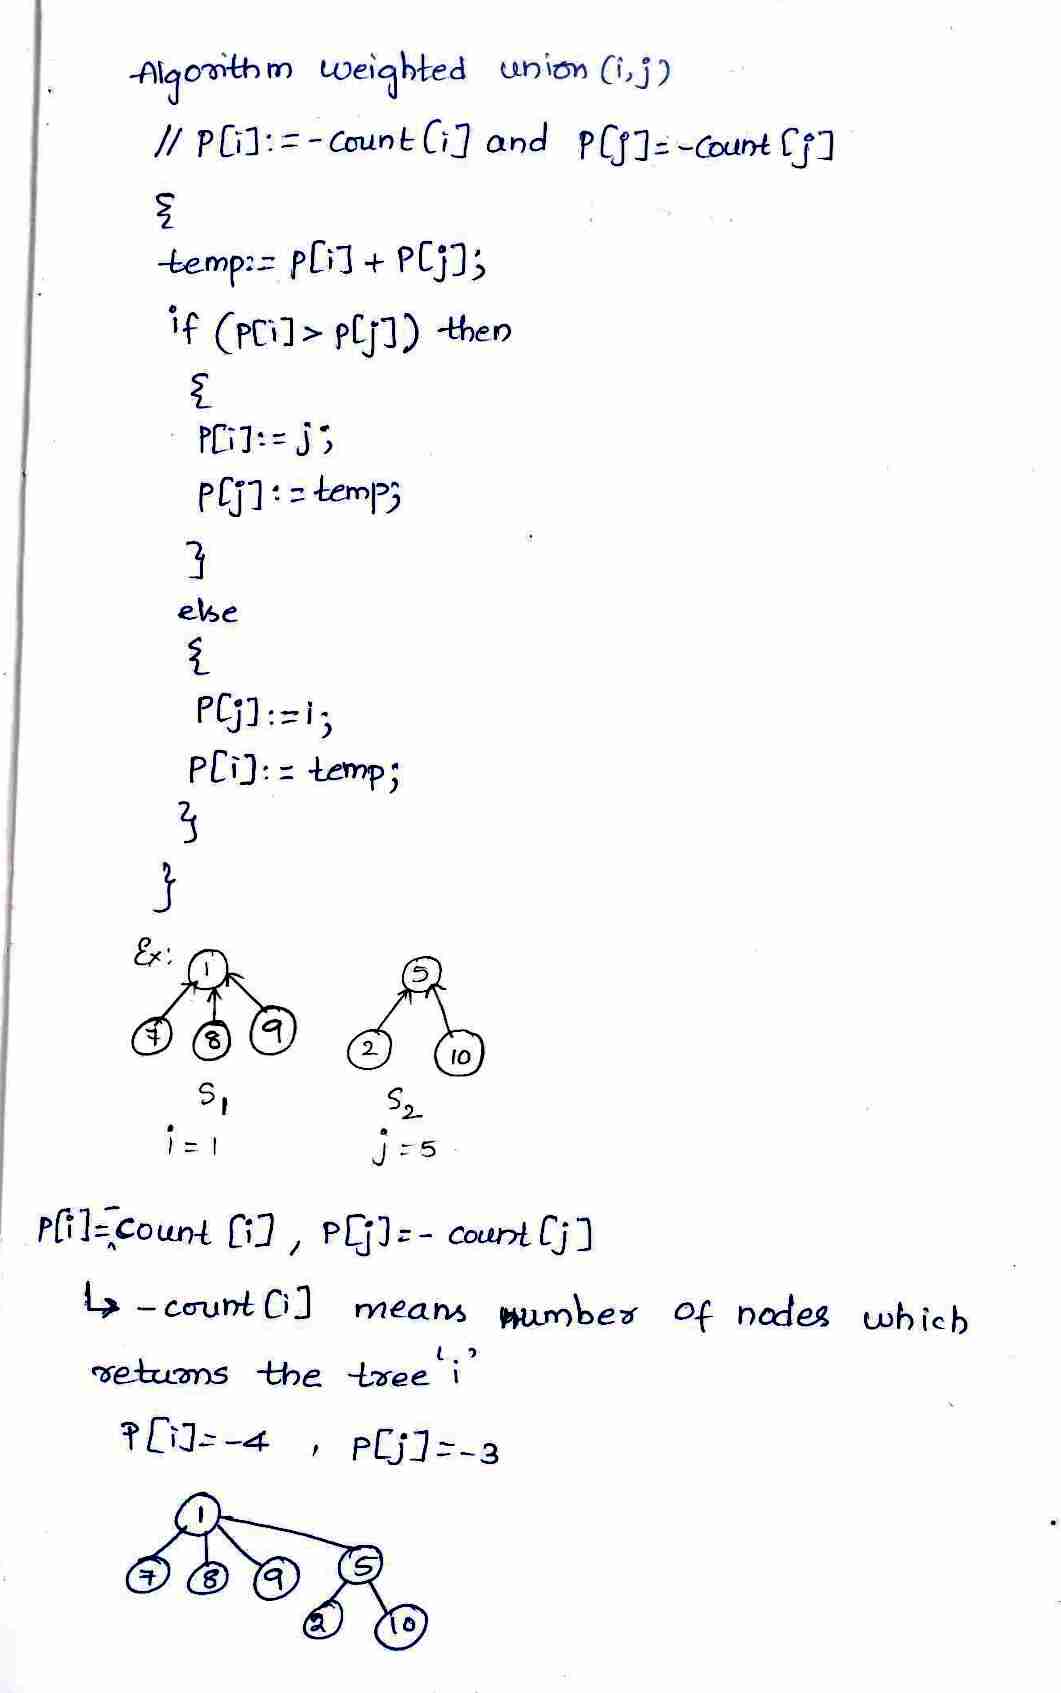 Algorithm weighted union (i,j)
// P[i]:=-count[i] and P[j]=-count[j]
{
temp:= P[i] + P[j];
if (P[i] > P[j]) then
{
P[i]:= j;
P[j]:= temp;
}
else
{
P[j]:= i;
P[i]:= temp;
}
}
Ex: 1 5
7 8 9 2 10
S1 S2
i = 1 j = 5
P[i]=-count [i] , P[j]=- count[j]
↳ -count[i] means number of nodes which
returns the tree 'i'
P[i]=-4 , P[j]=-3
1
7 8 9 5
2 10